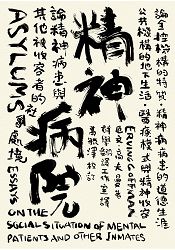 論全控機構的特質・精神病病患的道德生涯
公共機構的地下生活・醫療模式與精神收容
精神
病院
ERVING GOFFMAN
厄文・高夫曼 著
群學翻譯工作室 譯
萬毓澤 校訂
論精神病患與
其他被收容者的
社會處境
ASYLUMS
ESSAYS
ON THE
SOCIAL SITUATION OF MENTAL
PATIENTS AND OTHER INMATES